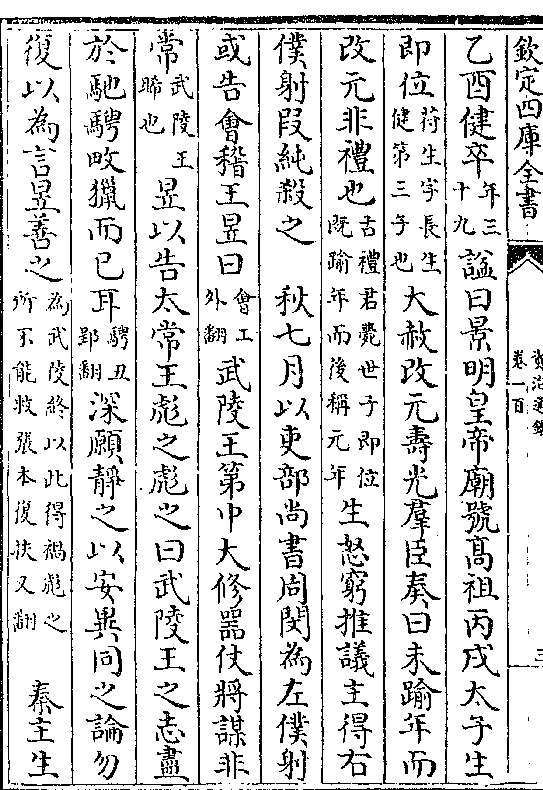 欽定四庫全書
資治通鑑
卷一百
三
乙酉健卒年三十九諡曰景明皇帝廟號髙祖丙戌太子生
即位苻生字長生健第三子也大赦改元壽光羣臣奏曰未踰年而
改元非禮也古禮君薨世子即位既踰年而後稱元年生怒窮推議主得右
僕射段純殺之　秋七月以吏部尚書周閔為左僕射
或告會稽王昱曰會工外翻武陵王第中大修器仗將謀非
常武陵王晞也昱以告太常王彪之彪之曰武陵王之志盡
於馳騁畋獵而已耳騁丑郢翻深願靜之以安異同之論勿
復以為言昱善之為武陵終以此得禍彪之所不能救張本復扶又翻　秦主生